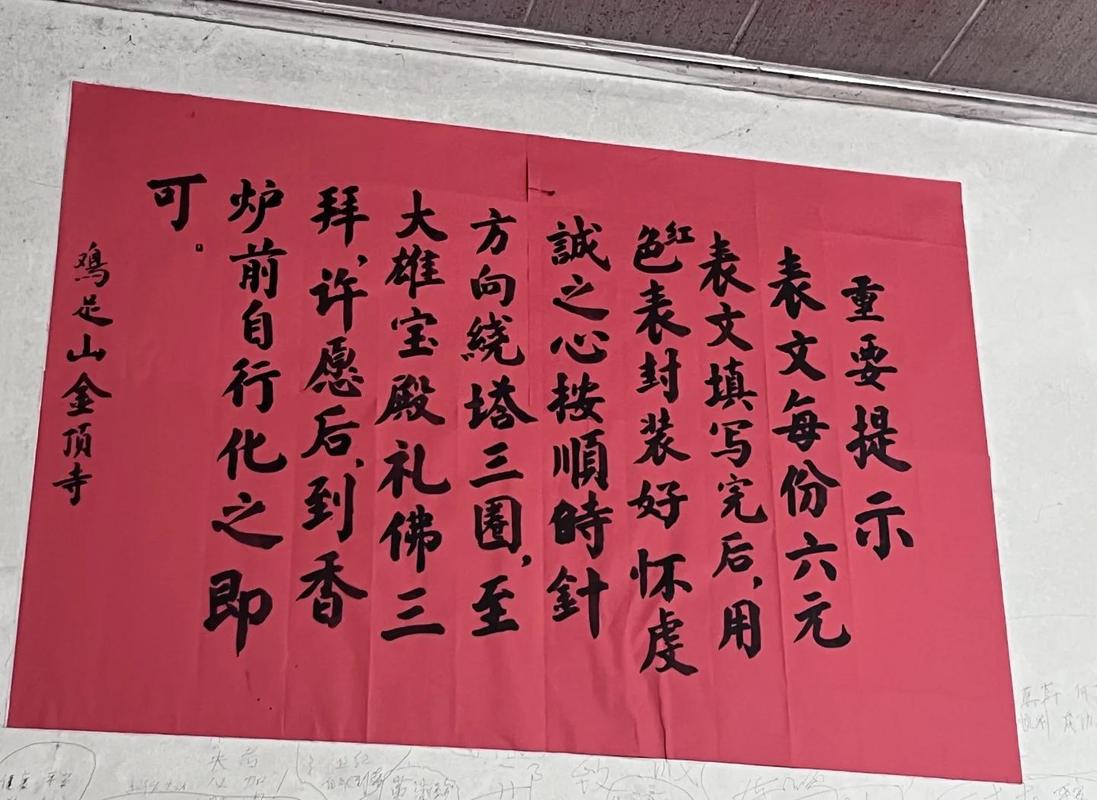 重要提示
表文每份六元
表文填写完后,用
红色表封装好怀虔
誠之心按順時針
方向绕塔三圈,至
大雄宝殿礼佛三
拜、许愿后,到香
炉前自行化之即
可。
鸡足山金顶寺